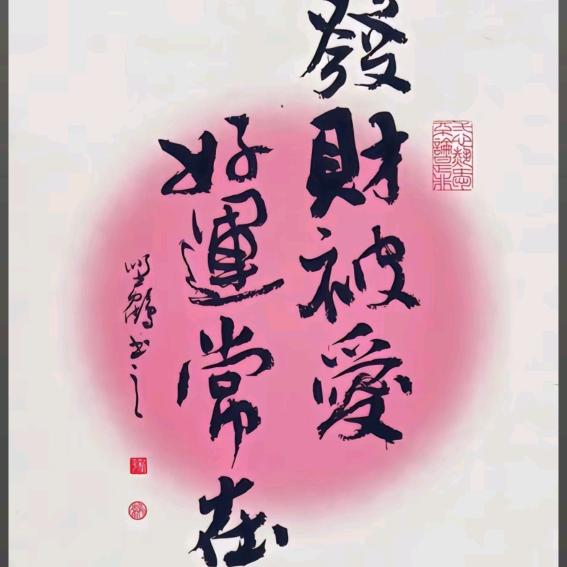 發財被愛
好運常在